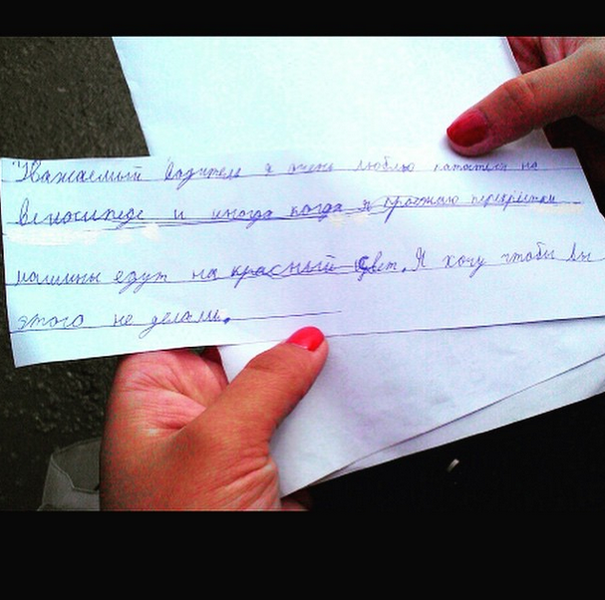 "Уважаемый водитель я очень люблю кататься на
велосипеде и иногда когда я проезжаю перекрёстки
машины едут на красный свет. Я хочу чтобы вы
этого не делали.